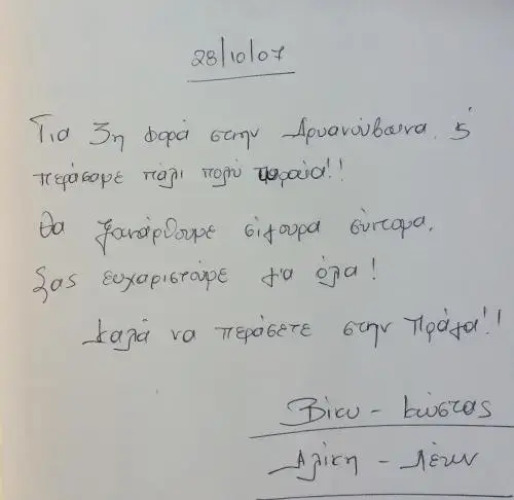 28/10/07
Για 3η φορά στην Αρυανούβωνα. &
περάσαμε πάλι πολύ ωραία!!
Θα ξανάρθουμε σίγουρα σύντομα.
Σας ευχαριστούμε για όλα!
Καλά να περάσετε στην Πράγα!!
Βίκυ - Κώστας
Αλίκη -